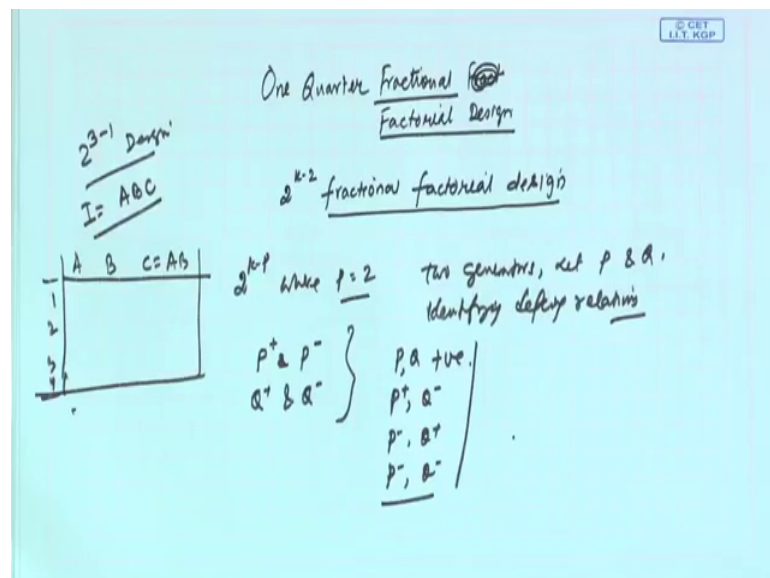 © CET
I.I.T. KGP
One Quarter Fractional
Factorial Design
2^{3-1} Design
I = ABC
2^{k-2} fractional factorial design
A B C=AB
1
2
3
4
2^{k-p} where p=2
two generators, let P & Q.
Identifying defing relations
P^+ & P^-
Q^+ & Q^-
P, Q +ve.
P^+, Q^-
P^-, Q^+
P^-, Q^-